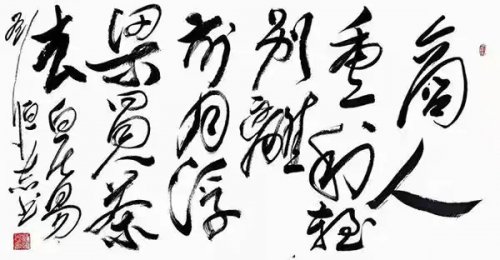 商人
重利輕
别離
前月浮
梁買茶
去 白居易
刘恒志书